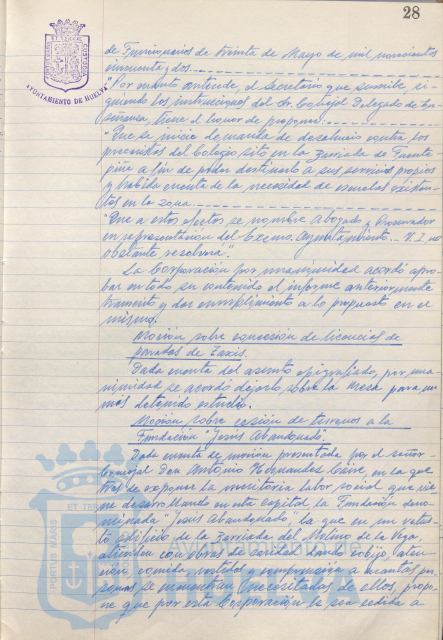 28
AYUNTAMIENTO DE HUELVA
de Funcionarios de treinta de Mayo de mil novecientos
cincuenta y dos.
"Por cuanto antecede, el Secretario que suscribe si-
guiendo las instrucciones del Sr. Concejal Delegado de En-
señanza, tiene el honor de proponer:
"Que se inicie demanda de desahucio contra los
precaristas del Colegio sito en la Barriada de Fuente
piña a fin de poder destinarlo a sus servicios propios
y habida cuenta de la necesidad de escuelas existen-
tes en la zona.
"Que a estos efectos se nombre Abogado y Procurador
en representación del Excmo. Ayuntamiento. V.I. no
obstante resolverá".
La Corporación por unanimidad acordó apro-
bar en todo su contenido el informe anteriormente
transcrito y dar cumplimiento a lo propuesto en el
mismo.
Moción sobre concesión de licencias de
paradas de Taxis.
Dada cuenta del asunto epigrafiado, por una-
nimidad se acordó dejarlo sobre la Mesa para un
más detenido estudio.
Moción sobre cesión de terrenos a la
Fundación "Jesús Abandonado.
Dada cuenta de moción presentada por el señor
Concejal Don Antonio Hernandez en la que
tras de exponer la meritoria labor social que vie
ne desarrollando en esta capital la Fundación deno-
minada "Jesús Abandonado", la que en un vetus
to edificio de la Barriada del Molino de la Vega,
atienden con obras de caridad dando cobijo, aten
ción, comida, vestidos y comprensión a cuantas per
sonas se encuentran necesitadas de ellos, propo-
ne que por esta Corporación le sea cedida a
PORTUS MARIS ET TERRAE